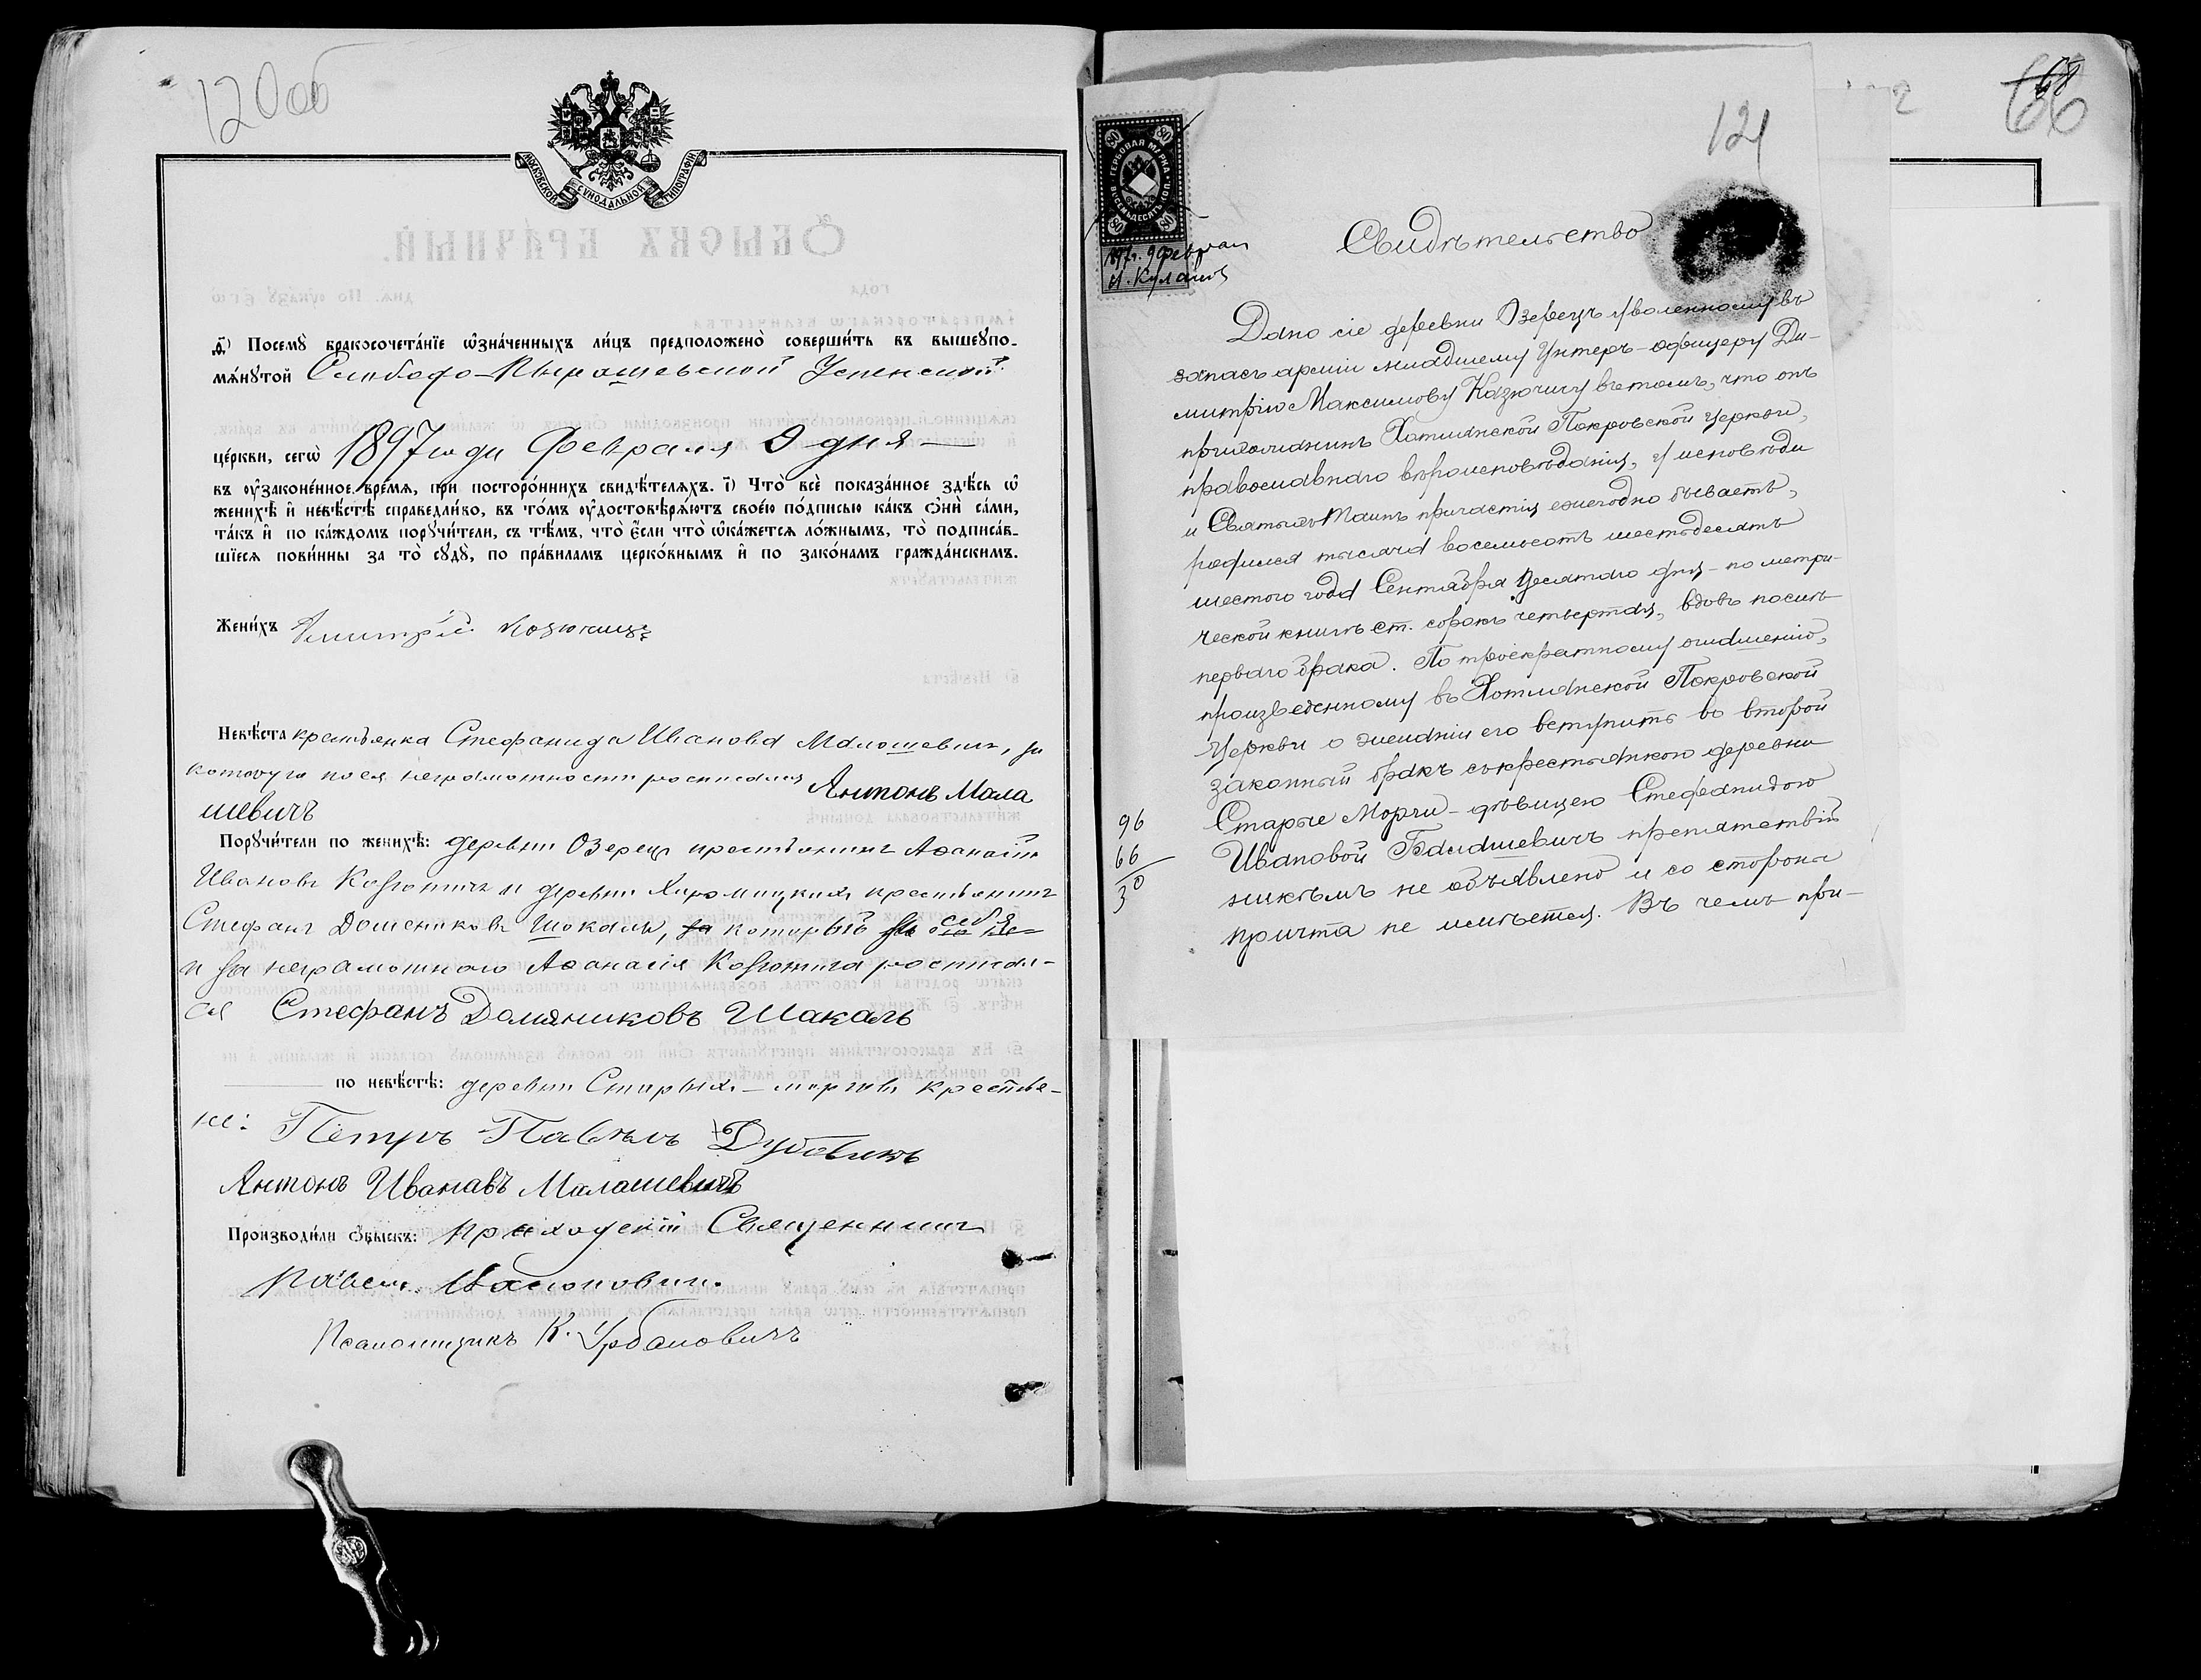 120об
МОСКОВСКОЙ СѴНОДАЛЬНОЙ ТИПОГРАФІИ
д҃і) Посемꙋ̀ бракосочета́нїе ѡ҆зна́ченныхъ ли́цъ предположено̀ соверши́ть въ вышеꙋпо-
мѧ́нꙋтой Слободо-Пырашевской Успенской
це́ркви, сегѡ̀ 1897 года Февраля 9 дня
въ ᲂу҆зако́ненное вре́мѧ, при посторо́ннихъ свидѣ́телѧхъ. і҃) Что̀ всѐ пока́занное здѣ́сь ѡ҆
женихѣ̀ и҆ невѣ́стѣ справедли́во, въ то́мъ ᲂу҆достовѣрѧ́ютъ свое́ю по́дписью ка́къ ѻ҆нѝ са́ми,
та́къ и҆ по ка́ждомъ порꙋчи́тели, съ тѣ́мъ, что̀ є҆́сли что̀ ѡ҆ка́жетсѧ ло́жнымъ, то̀ подписа́в-
шїесѧ пови́нны за то̀ сꙋдꙋ̀, по пра́виламъ церко́внымъ и҆ по зако́намъ гражда́нскимъ.
Жени́хъ Дмитрій Козючицъ
Невѣ́ста крестьянка Стефанида Иванова Малошевичъ, за
которую по ея неграмотности росписался Антонъ Мала
шевичъ
Порꙋчи́тели по женихѣ̀: деревни Озерец крестьянинъ Аѳанасій
Ивановъ Козючиц и деревни Хоромицкихъ крестьянинъ
Стефанъ Домениковъ Шокаль, за который за себя
и за неграмотнаго Аѳанасія Козючица росписал-
ся Стефанъ Домяниковъ Шакаль
по невѣ́стѣ: деревни Старыхъ-моргов крестья-
не: Петръ Павелъ Дубовикъ
Антонъ Иванавъ Малашевичъ
Производи́ли ѻ҆́быскъ: Приходскій Священникъ
Павелъ
Псаломщикъ К. Урбановичъ
121
68
66
ГЕРБОВАЯ МАРКА
ВОСЕМЬДЕСЯТЪ КОП.
80 80
80 80
1897г. 9 Февраля
Свидѣтельство
Дано сіе деревни Озерецъ уволенному въ
запасъ арміи младшему Унтеръ-офицеру Ди-
митрію Максимову Казючицу въ томъ, что онъ
прихожанинъ Хотлянской Покровской церкви,
православнаго вѣроисповѣданія, у исповѣди
и Святыхъ Таинъ причастія ежегодно бываетъ,
родился тысяча восемьсотъ шестьдесятъ
шестого года Сентября десятаго дня - по метри-
ческой книгѣ ст. сорокъ четвертая, вдовъ послѣ
перваго брака. По троекратному оглашенію,
произведенному въ Хотлянской Покровской
Церкви о желаніи его вступить во второй
законный бракъ съ крестьянкою деревни
Старые Морги - дѣвицею Стефанидою
Ивановой Балашевичъ препятствій
никѣмъ не объявлено и со стороны
причта не имѣется. Въ чемъ при-
96
66
30